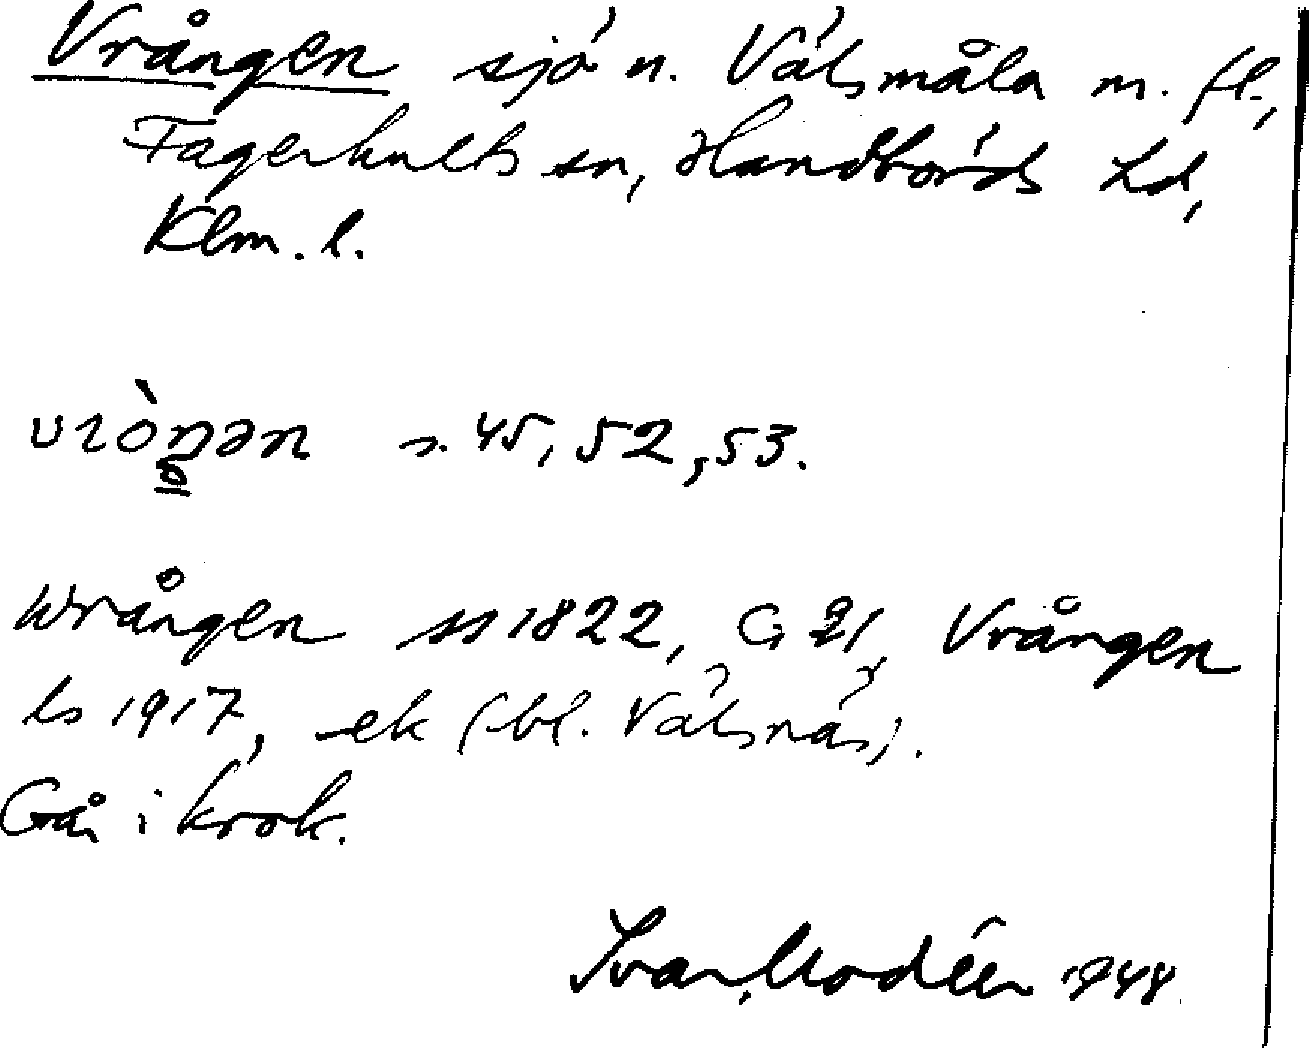 Vrången sjö n. Välsmåla m. fl.,
Fagerhults sn, Handbörds hd,
Klm. l.
vròŋən s. 45, 52, 53.
Wrången ss 1822, G 21, Vrången
ls 1917, ek (bl. Välsnäs).
Går i krok.
Ivar Modéer 1948